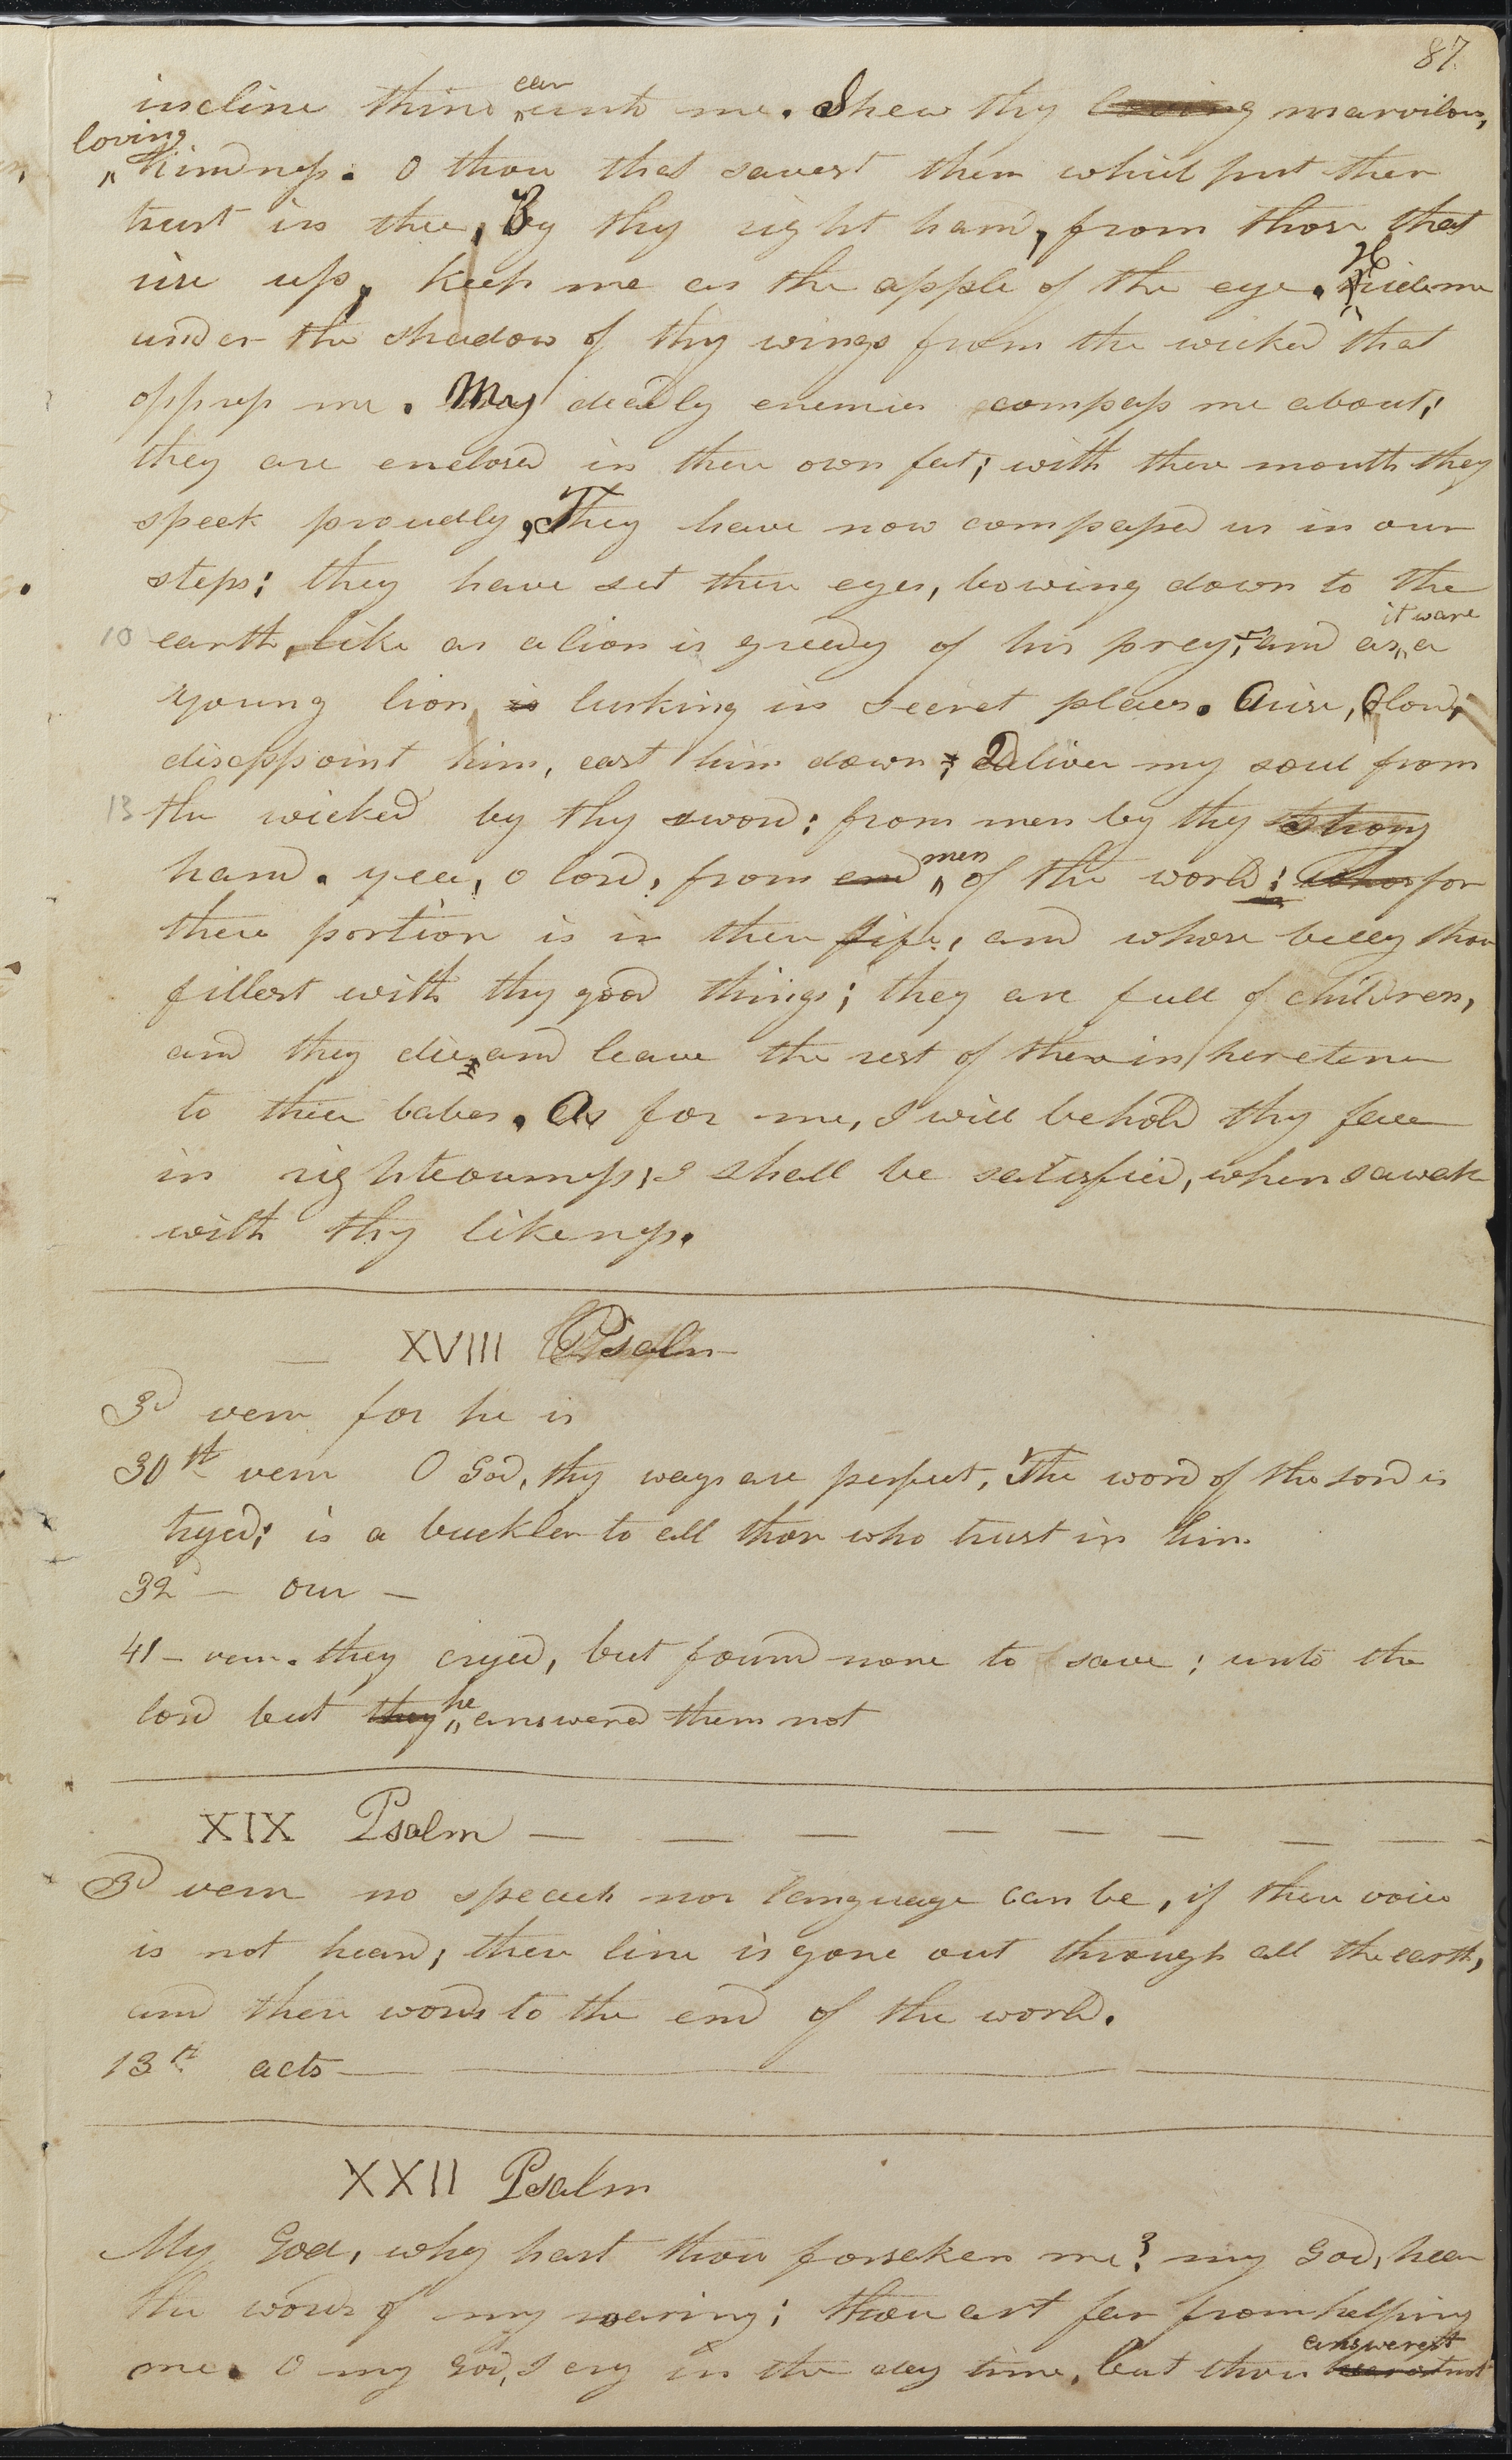 87
incline thine ear unto me. Shew thy loving marvilous,
loving
kindness. O thou that savest them which put ther
trust in thee, By thy right hand, from those that
rise up, keep me as the apple of the eye. Hide me
under the shadow of thy wings from the wicked that
oppress me. My deadly enemies compass me about;
they are enclosed in there own fat; with there mouth they
speek proudly. They have now compassed us in our
steps; they have set there eyes, bowing down to the
10 earth, like as a lion is greedy of his prey; and as it ware a
young lion is lurking in secret places. Arise, O lord,
disappoint him, cast him down; Deliver my soul from
13 the wicked by thy sword; from men by thy strong
hand. yea, o lord, from end men of the world; whos for
there portion is in there life, and whose belley thou
fillest with thy good things; they are full of children,
and they die and leave the rest of there in heretence
to there babes. As for me, I will behold thy face
in righteousness; I shall be satisfied, when I awak
with thy likeness.
XVIII Psalm
3d verse for he is
30th verse O God, thy ways are perfect, The word of the lord is
tryed; is a buckler to all those who trust in him
32 — our —
41 — verse. they cryed, but found none to save; unto the
lord but they he answered them not
XIX Psalm — — — — — — — —
3d verse no speach nor language can be, if there voice
is not heard; there line is gone out through all the earth,
and there words to the end of the world.
13th acts
XXII Psalm
My God, why hast thou forseken me? my God, hear
the words of my roaring; thou art far from helping
me. O my God, I cry in the day time, but thou answerest hearest not